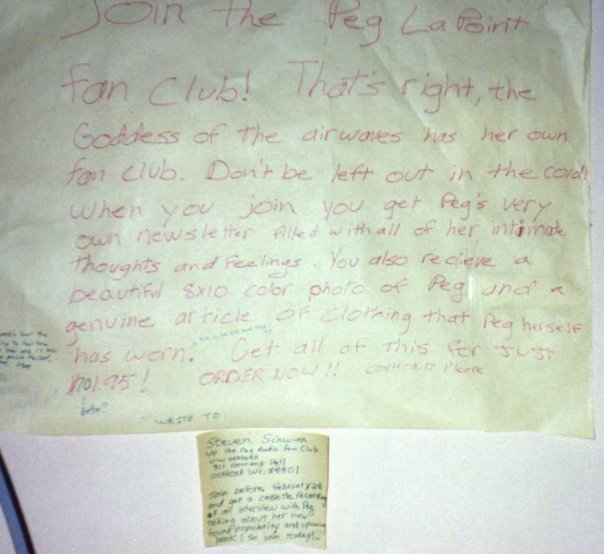 Join the Peg LaPoint
fan club! That's right, the
Goddess of the airwaves has her own
fan club. Don't be left out in the cold!
When you join you get Peg's very
own newsletter filled with all of her intimate
thoughts and feelings. You also recieve a
beautiful 8x10 color photo of Peg and a
genuine article of clothing that Peg herself
has worn. Get all of this for just
$701.95! ORDER NOW!! CASH ONLY Please
WRITE TO
Steven Schwinn
c/o the Peg Radio Fan Club
UW Oshkosh
Hall
Oshkosh Wi. 54901
Join before February 28
and get a cassette recording
of an interview with Peg
talking about her new
found popularity and upcoming
book! So join today!!!